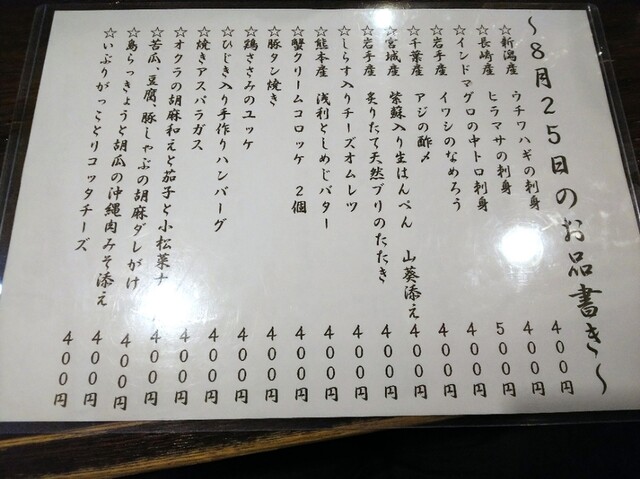 〜８月２５日のお品書き〜
☆新潟産 ウチワハギの刺身 ４００円
☆長崎産 ヒラマサの刺身 ４００円
☆インドマグロの中トロ刺身 ５００円
☆岩手産 イワシのなめろう ４００円
☆千葉産 アジの酢〆 ４００円
☆宮城産 紫蘇入り生はんぺん 山葵添え ４００円
☆岩手産 炙りたて天然ブリのたたき ４００円
☆しらす入りチーズオムレツ ４００円
☆熊本産 浅利としめじバター ４００円
☆蟹クリームコロッケ ２個 ４００円
☆豚タン焼き ４００円
☆鶏ささみのユッケ ４００円
☆ひじき入り手作りハンバーグ ４００円
☆焼きアスパラガス ４００円
☆オクラの胡麻和えと茄子と小松菜ナ ４００円
☆苦瓜、豆腐、豚しゃぶの胡麻ダレがけ ４００円
☆島らっきょうと胡瓜の沖縄肉みそ添え ４００円
☆いぶりがっことリコッタチーズ ４００円